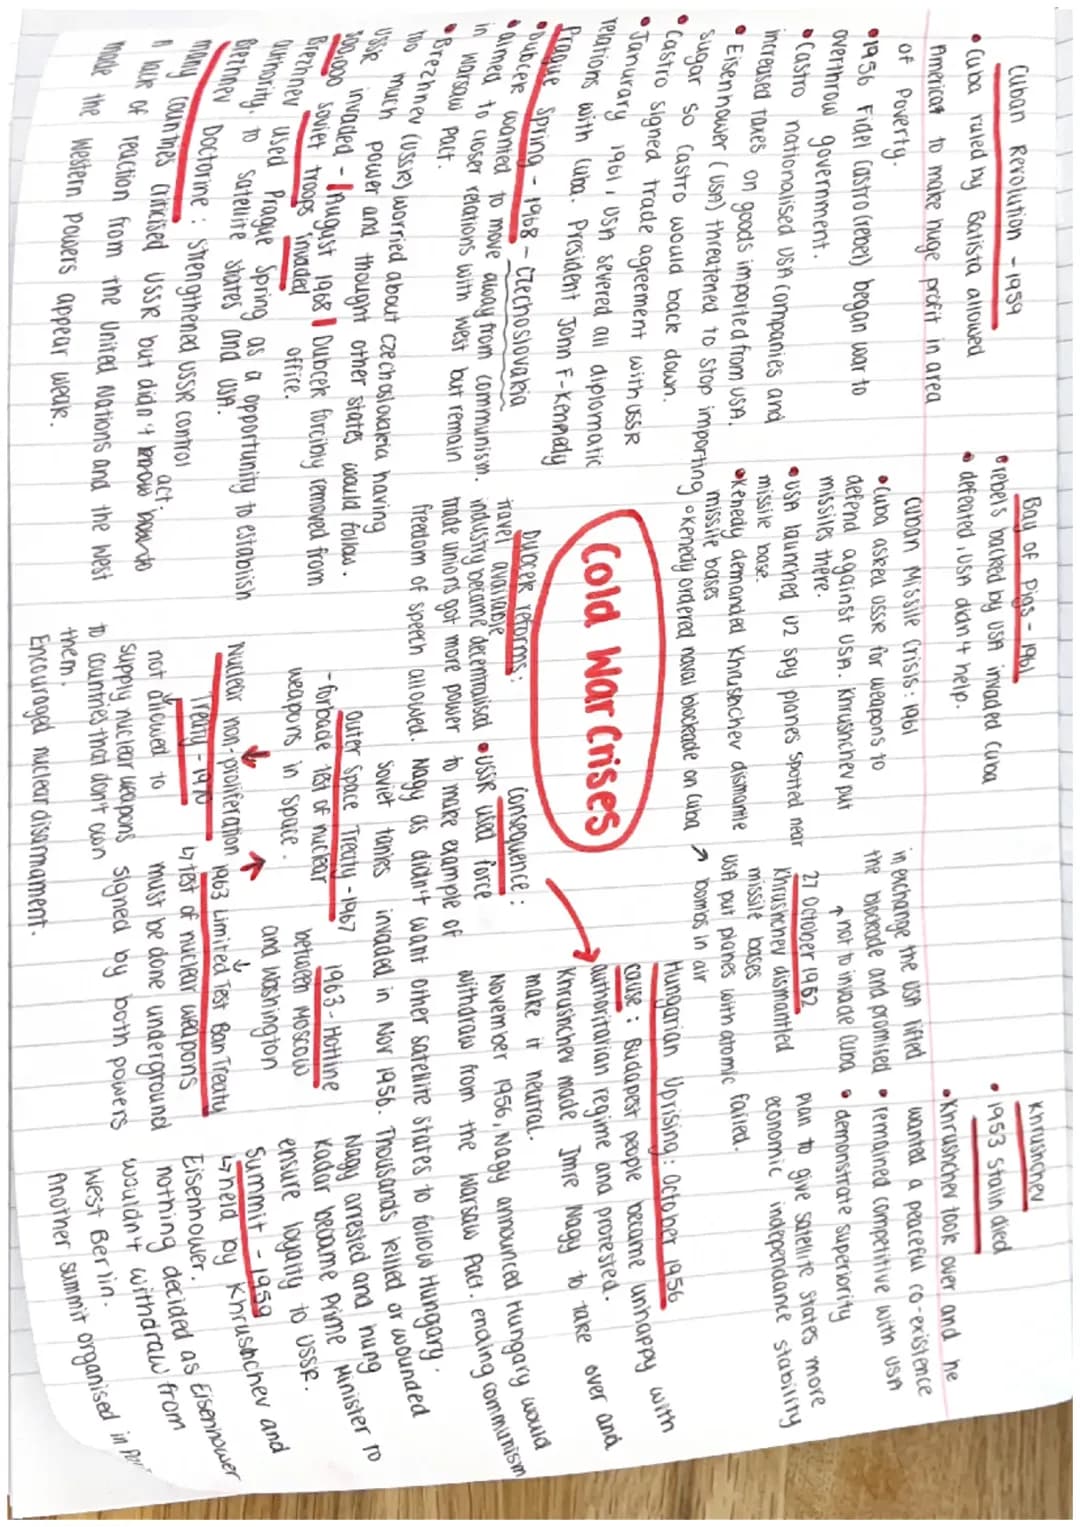 Cuban Revolution - 1959
• Cuba ruled by Batista allowed
American to make huge profit in area
of Poverty.
• 1956 Fidel Castro (rebel) began war to
overthrow government.
• Castro nationalised USA companies and
increased taxes on goods imported from USA.
• Eisennower (USA) threatened to stop importing
sugar so Castro would back down.
• Castro signed trade agreement with USSR
• Janurary 1961, USA severed all diplomatic
relations with Cuba. President John F-Kennedy
Bay of Pigs - 1961
• rebels backed by USA invaded Cuba
• defeated, USA didn't help.
Cuban Missile Crisis: 1961
• Cuba asked USSR for weapons to
defend against USA. Khrushchev put
missiles there.
• USA launched U2 spy planes spotted near
missile base.
• Kenedy demanded Khrushchev dismantle
missile bases
• Kenedy ordered naval blockade on Cuba
in exchange the USA lifted
the blockade and promised
↑ not to invade Cuba
27 October 1962
Khrushchev dismantled
missile bases
USA put planes with atomic
↗ bombs in air
Khrushchev
• 1953 Stalin died
• Khrushchev took over and he
wanted a peaceful co-existence
• remained competitive with USA
• demonstrate superiority
plan to give satellite states more
economic independance stability
failed.
Cold War Crises
Prague Spring - 1968 - Czechoslovakia
• Dubcek wanted to move away from communism.
• aimed to closer relations with West but remain
in Warsaw Pact.
• Brezhnev (USSR) worried about Czechoslovakia having
too much power and thought other states would follow.
USSR invaded - August 1968 | Dubcek forcibly removed from
500,000 Soviet troops invaded office.
Brezhnev used Prague Spring as a opportunity to establish
authority to satellite states and USA.
Brezhnev Doctorine: Strengthened USSR control
many countries criticised USSR but didn't know how to act;
a lack of reaction from the United Nations and the West
made the Western Powers appear weak.
Dubcek reforms:
travel available
industry became decentralised
trade unions got more power
freedom of speech allowed.
Hungarian Uprising: October 1956
cause: Budapest people became unhappy with
authoritarian regime and protested.
Khrushchev made Imre Nagy to take over and
make it neutral.
November 1956, Nagy announced Hungary would
withdraw from the Warsaw Pact. ending communism
Consequence:
• USSR used force
to make example of
Nagy as didn't want other satellite states to follow Hungary.
Soviet tanks invaded in Nov 1956. Thousands killed or wounded
Nagy arrested and hung
Kadar became Prime Minister to
ensure loyalty to USSR.
Outer Space Treaty - 1967
- forbade test of nuclear
weapons in space.
1963 - Hotline
between Moscow
and Washington
Nuclear non-proliferation
Treaty - 1970
not allowed to
supply nuclear weapons
to countries that don't own
them.
Encouraged nuclear disarmament.
1963 Limited Test Ban Treaty
↳ test of nuclear weapons
must be done underground
signed by both powers
Summit - 1959
↳ held by Khrushchev and
Eisenhower.
nothing decided as Eisenhower
wouldn't withdraw from
West Berlin.
Another summit organised in